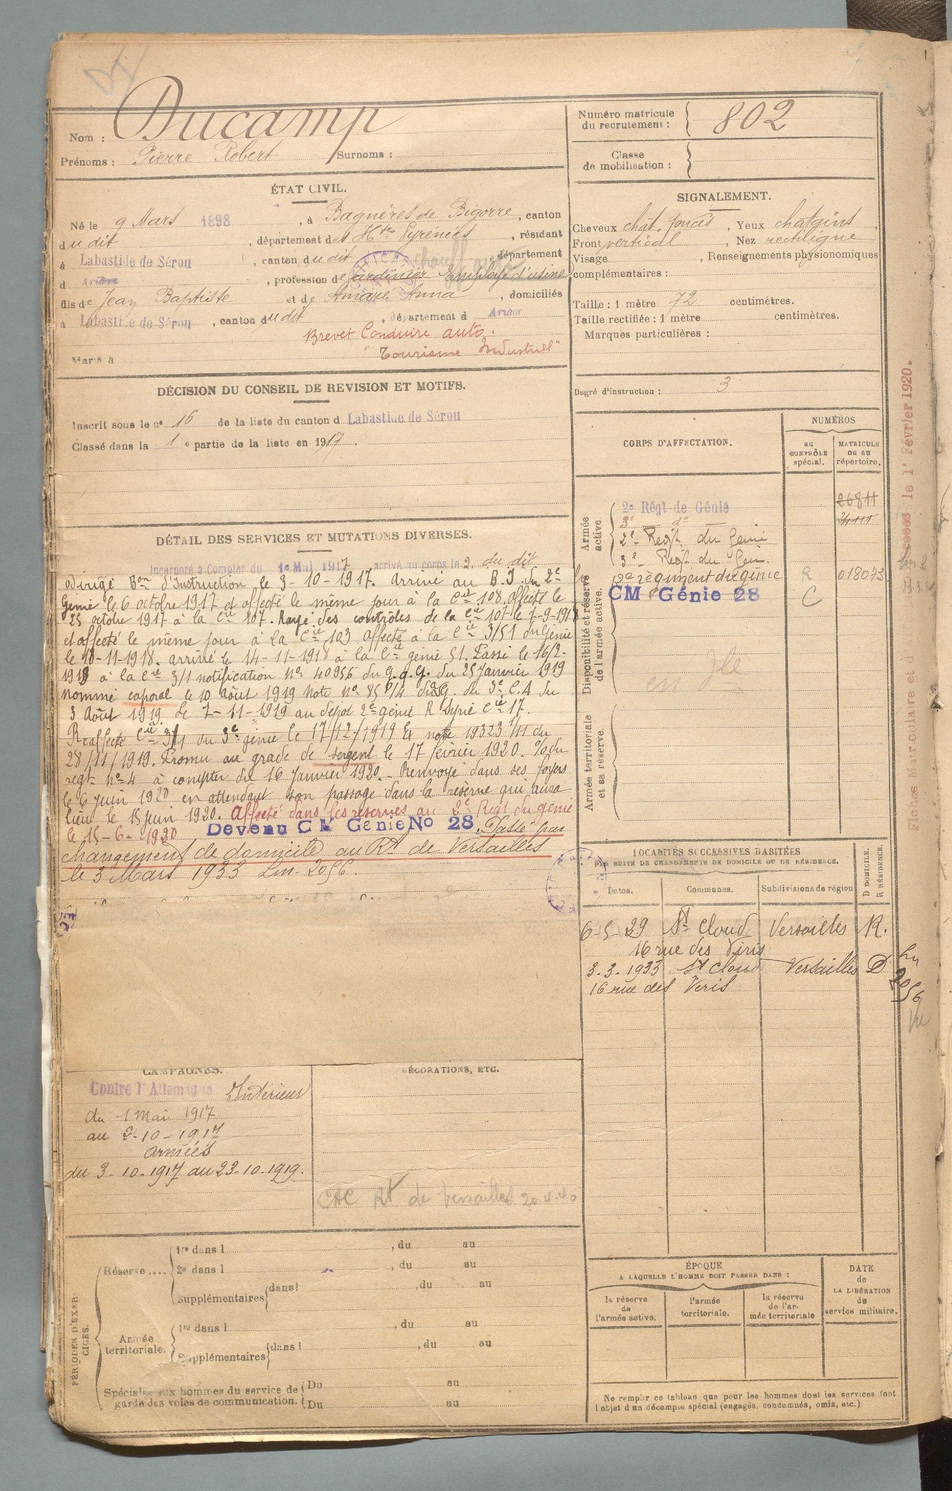 Nom : Ducamp
Prénoms : Pierre Robert Surnoms :
Numéro matricule
du recrutement : 802
Classe
de mobilisation :
ÉTAT CIVIL.
Né le 9 Mars 1898, à Bagnères de Bigorre, canton
dudit, département des Htes Pyrénées, résidant
à Labastide de Sérou, canton dudit, département
d Ariège, profession de jardinier Employé d'usine
fils de Jean Baptiste et de Amare Anna, domiciliés
à Labastide de Sérou, canton dudit, département d Ariège
Brevet Conduire auto.
"Tourisme Industriel"
Marié à
SIGNALEMENT.
Cheveux chat. foncés, Yeux chatains
Front vertical, Nez rectiligne
Visage, Renseignements physionomiques
complémentaires :
Taille : 1 mètre 72 centimètres.
Taille rectifiée : 1 mètre centimètres.
Marques particulières :
Degré d'instruction : 3
DÉCISION DU CONSEIL DE REVISION ET MOTIFS.
Inscrit sous le no 16 de la liste du canton d Labastide de Sérou
Classé dans la 1e partie de la liste en 1917.
CORPS D'AFFECTATION.
NUMÉROS
AU CONTRÔLE spécial.
MATRICULE OU AU répertoire.
Armée active.
2e Régt de Génie 26811
3e do
2e Regt du Génie
3e Regt du Gen.
Disponibilité et réserve de l'armée active.
2e régiment du génie R 018073
CM Génie 28 C
Armée territoriale et sa réserve.
Fiches Matriculaire et le 1er Février 1920.
DÉTAIL DES SERVICES ET MUTATIONS DIVERSES.
Incorporé à Compter du 1er Mai 1917 arrivé au corps le 2 du dit
Dirigé Bon d'Instruction le 3-10-1917. Arrivé au B.I. du 2e
Génie le 6 octobre 1917 et affecté le même jour à la Cie 108. affecté le
25 octobre 1917 à la Cie 107. Rayé des contrôles de la Cie 107 le 7-9-1918
et affecté le même jour à la Cie 103 affecté à la Cie 3/51 du Génie
le 10-11-1918. arrivé le 14-11-1918 à la Cie génie 51. Passé le 16/2-
1919 à la Cie 3/1 notification no 40956 du G.Q.G. du 25 Janvier 1919
nommé caporal le 10 Août 1919 Note no 850/4 du 3e C.A du
3 Août 1919. le 7-11-1919 au dépôt 2e génie R Syrie Cie 17.
Reaffecté Cie 3/1 du 3e génie le 17/12/1919 et note 19323 du
28/11/1919. Promu au grade de sergent le 17 février 1920. O. du
regt no 4 à compter du 16 Janvier 1920. Renvoyé dans ses foyers
le 6 juin 1920 en attendant son passage dans la réserve qui aura
lieu le 15 juin 1920. Affecté dans les réserves au 2e Régt du génie
le 15-6-1920 Devenu CM Génie No 28 Passé par
changement de domicile au Rt de Versailles
le 3 Mars 1933 Lm. 2056.
LOCALITÉS SUCCESSIVES HABITÉES
PAR SUITE DE CHANGEMENTS DE DOMICILE OU DE RÉSIDENCE.
Dates. Communes. Subdivisions de région D DOMICILE. R RÉSIDENCE.
6-5-29 St Cloud Versailles R.
16 rue des Viris
3-3-1933 St Cloud Versailles D Lm 2056
16 rue des Viris
CAMPAGNES.
Contre l'Allemagne Intérieur
du 1 Mai 1917
au 2-10-1917
Armées
du 3-10-1917 au 23-10-1919.
DÉCORATIONS, ETC.
Rt de Versailles 20.4.40
PÉRIODES D'EXERCICES.
Réserve....
1re dans l, du au
2e dans l, du au
Supplémentaires dans l, du au
Armée territoriale.
1re dans l, du au
Supplémentaires dans l, du au
Spéciales aux hommes du service de garde des voies de communication. Du au
Du au
ÉPOQUE
A LAQUELLE L'HOMME DOIT PASSER DANS :
la réserve de l'armée active.
l'armée territoriale.
la réserve de l'armée territoriale
DATE de LA LIBÉRATION du service militaire.
Ne remplir ce tableau que pour les hommes dont les services font
l'objet d'un décompte spécial (engagés, condamnés, omis, etc.)